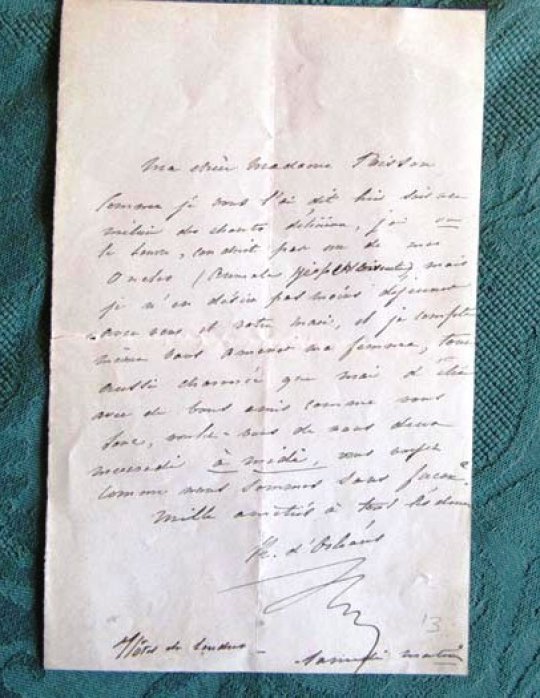 Ma chère Madame
Comme je vous l'ai dit hier soir au
milieu des chants délicieux, j'ai vu
le Louvre, conduit par un de mes
Oncles (Aumale mais
je n'en désire pas moins déjeuner
avec vous et votre mari, et je compte
même vous amener ma femme, tout
aussi charmée que moi d'être
avec de bons amis comme vous
donc, voulez-vous de nous deux
mercredi à midi, sans
Comme nous sommes sans façon
Mille amitiés à tous les deux
Ph. d'Orléans
Hôtel de Londres
Samedi matin
13